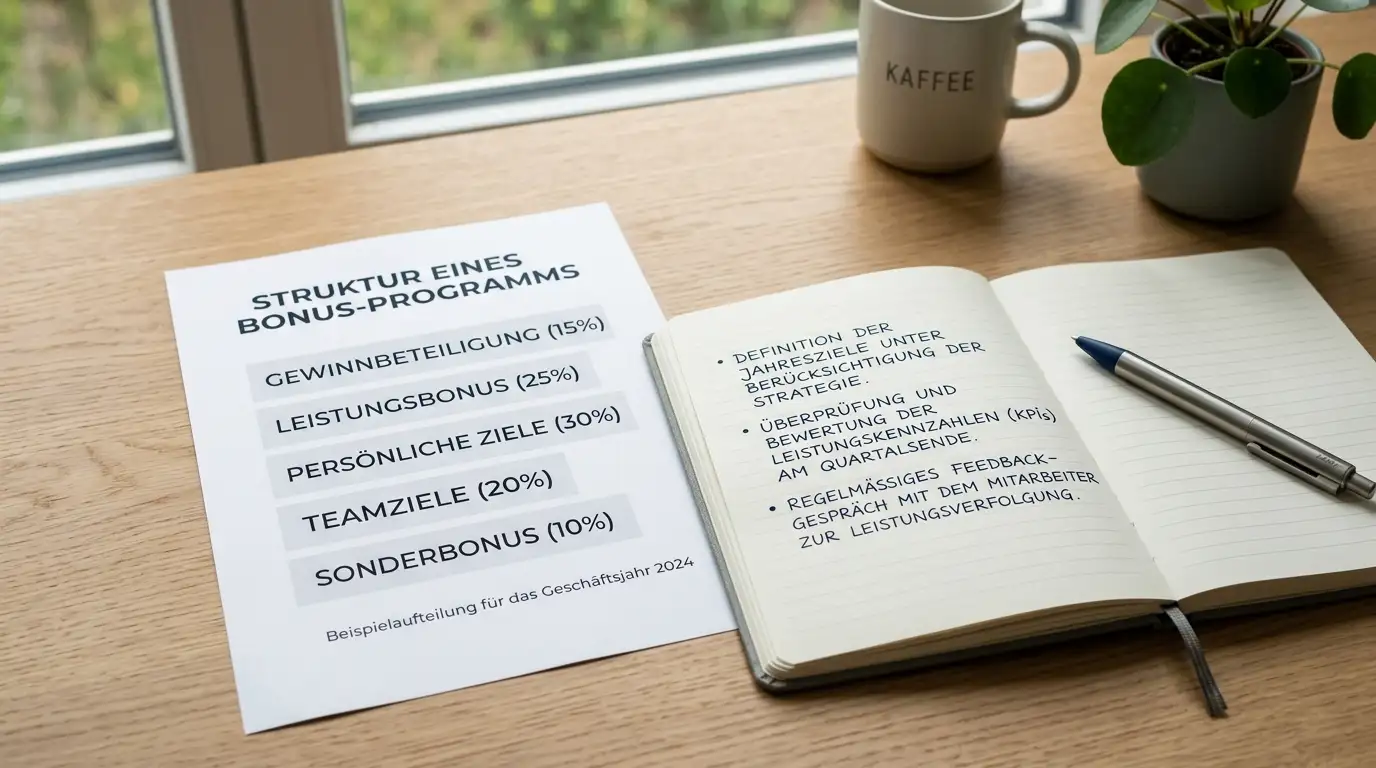 STRUKTUR EINES
BONUS-PROGRAMMS
GEWINNBETEILIGUNG (15%)
LEISTUNGSBONUS (25%)
PERSÖNLICHE ZIELE (30%)
TEAMZIELE (20%)
SONDERBONUS (10%)
Beispielaufteilung für das Geschäftsjahr 2024
• DEFINITION DER
JAHRESZIELE UNTER
BERÜCKSICHTIGUNG DER
STRATEGIE.
• ÜBERPRÜFUNG UND
BEWERTUNG DER
LEISTUNGSKENNZAHLEN (KPIs)
AM QUARTALSENDE.
• REGELMÄSSIGES FEEDBACK-
GESPRÄCH MIT DEM MITARBEITER
ZUR LEISTUNGSVERFOLGUNG.
KAFFEE